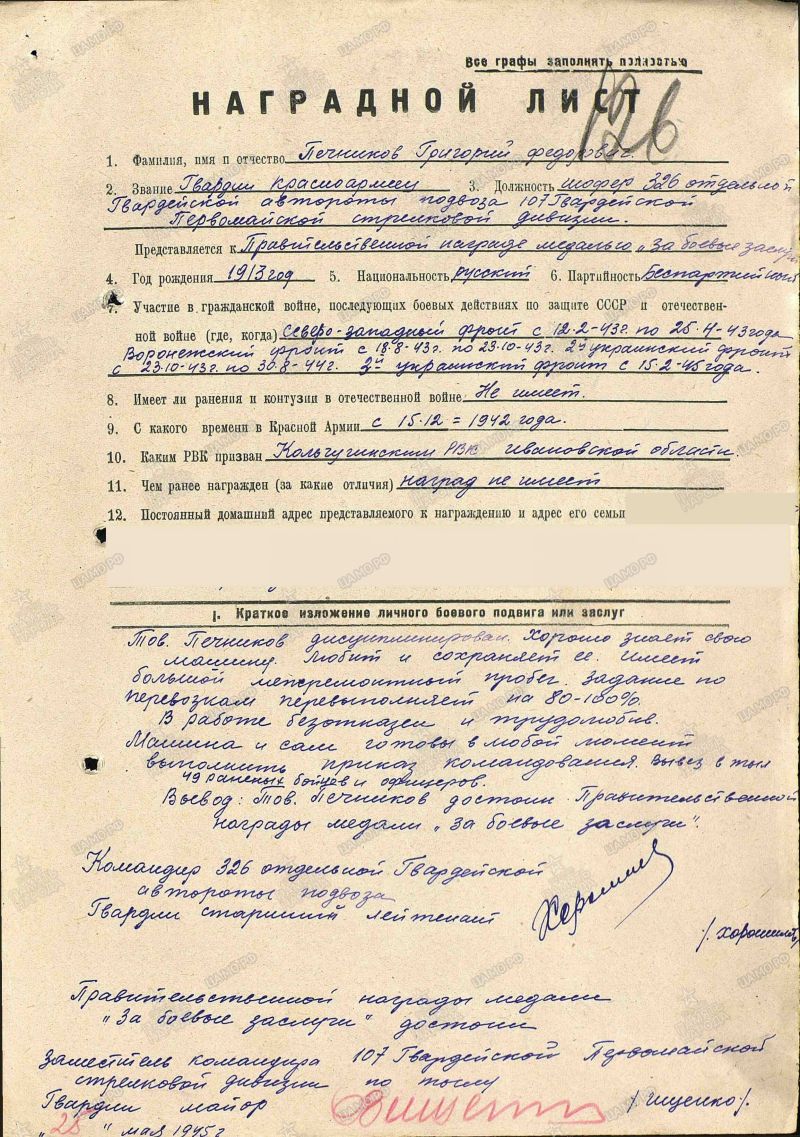 Все графы заполнять полностью
НАГРАДНОЙ ЛИСТ
126
1. Фамилия, имя и отчество Печников Григорий Федорович.
2. Звание Гвардии красноармеец 3. Должность шофер 326 отдельной
Гвардейской автороты подвоза 107 Гвардейской
Первомайской стрелковой дивизии.
Представляется к Правительственной награде медалью „За боевые заслуги
4. Год рождения 1913 год 5. Национальность русский 6. Партийность Беспартийный
7. Участие в гражданской войне, последующих боевых действиях по защите СССР и отечествен-
ной войне (где, когда) Северо-западный фронт с 12-2-43г. по 25-4-43 года
Воронежский фронт с 18-8-43г. по 23-10-43г. 2й украинский фронт
с 23-10-43г. по 30-8-44г. 2й украинский фронт с 15-2-45 года.
8. Имеет ли ранения и контузии в отечественной войне Не имеет.
9. С какого времени в Красной Армии с 15.12 = 1942 года.
10. Каким РВК призван Кольчугинским РВК ивановской области.
11. Чем ранее награжден (за какие отличия) наград не имеет
12. Постоянный домашний адрес представляемого к награждению и адрес его семьи
I. Краткое изложение личного боевого подвига или заслуг
Тов. Печников дисциплинирован. Хорошо знает свою
машину. Любит и сохраняет ее. Имеет
большой межремонтный пробег. Задание по
перевозкам перевыполняет на 80-100%.
В работе безотказен и трудолюбив.
Машина и сам готовы в любой момент
выполнить приказ командования. Вывез в тыл
49 раненых бойцев и офицеров.
Вывод: Тов. Печников достоин Правительственной
награды медали „За боевые заслуги".
Командир 326 отдельной Гвардейской
автороты подвоза
Гвардии старший лейтенант
Правительственной награды медали
„За боевые заслуги" достоин
Заместитель командира 107 Гвардейской Первомайской
стрелковой дивизии по тылу
Гвардии майор Ищенко /Ищенко/.
„25" мая 1945 г
ЦАМО.РФ